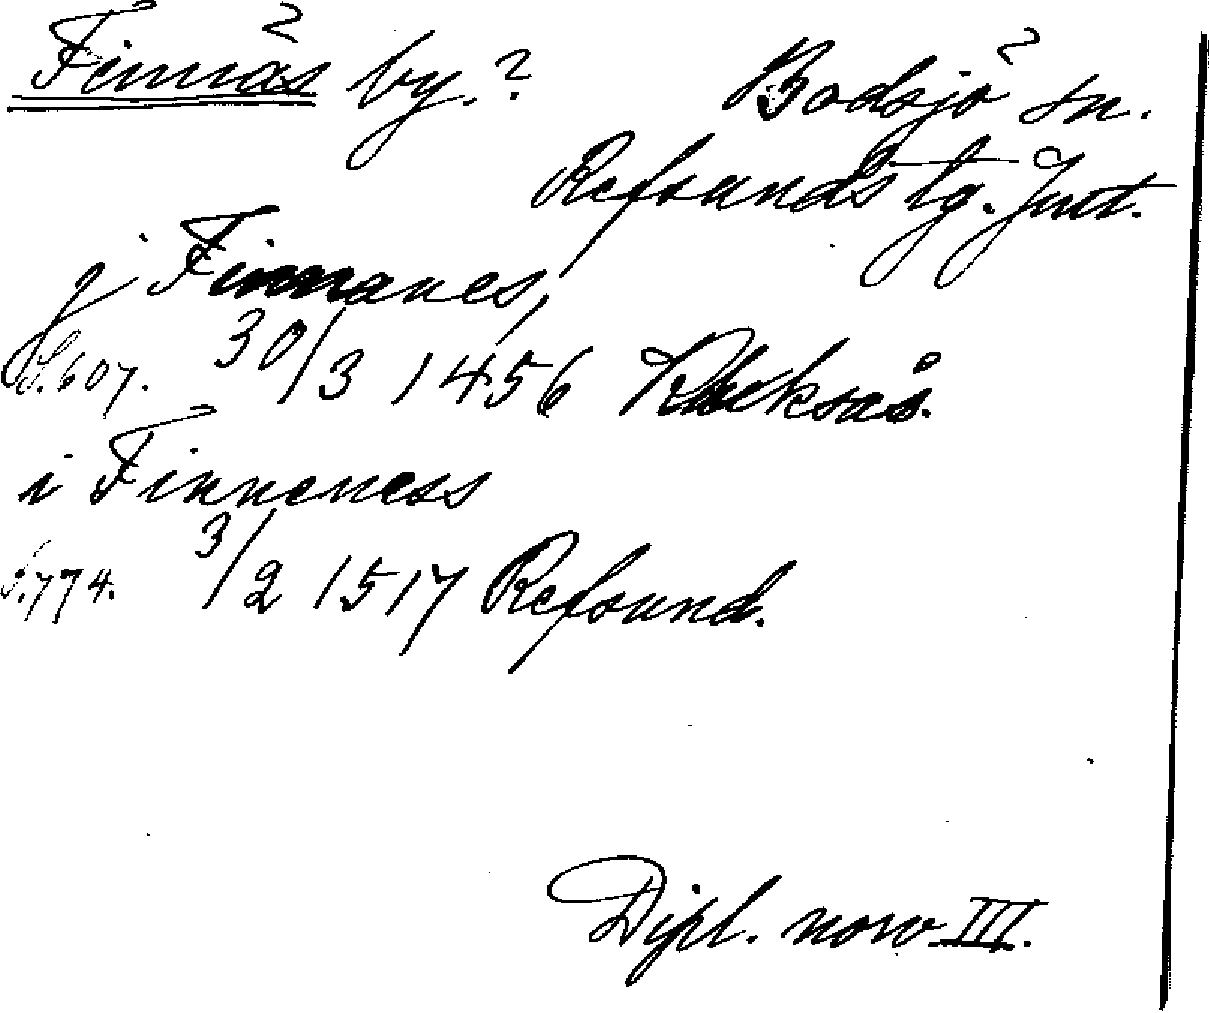 Finnäs by.?
Bodsjö sn.
Refsunds tg. Jmt.
j Finnanes,
S. 607. 30/3 1456
i Finneness
S. 774. 3/2 1517 Refsund.
Dipl. norv III.